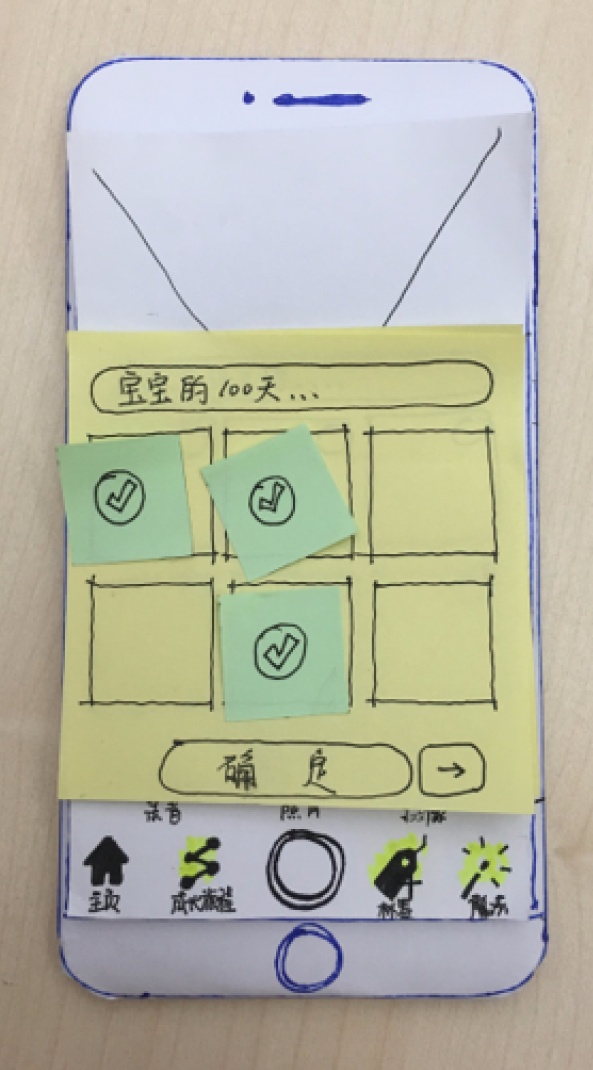 宝宝的100天...
确 定
录音 照片 扫描
主页 成长旅程 标签 魔法